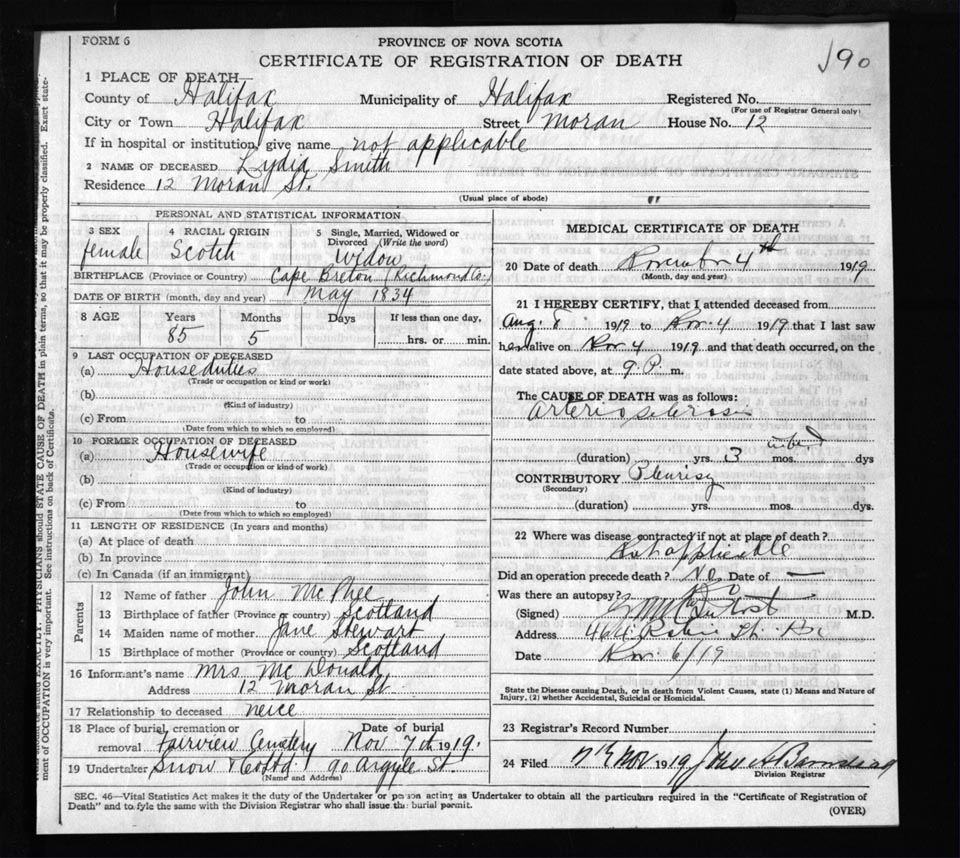 FORM 6
PROVINCE OF NOVA SCOTIA
CERTIFICATE OF REGISTRATION OF DEATH
190
1 PLACE OF DEATH—
County of Halifax Municipality of Halifax Registered No.
(For use of Registrar General only)
City or Town Halifax Street Moran House No. 12
If in hospital or institution, give name not applicable
2 NAME OF DECEASED Lydia Smith
Residence 12 Moran St.
(Usual place of abode) "
PERSONAL AND STATISTICAL INFORMATION
3 SEX female
4 RACIAL ORIGIN Scotch
5 Single, Married, Widowed or Divorced (Write the word) Widow
BIRTHPLACE (Province or Country) Cape Breton (Richmond Co.)
DATE OF BIRTH (month, day and year) May 1834
8 AGE Years Months Days If less than one day,
85 5 hrs. or min.
9 LAST OCCUPATION OF DECEASED
(a) House duties
(Trade or occupation or kind or work)
(b)
(Kind of industry)
(c) From to
(Date from which to which so employed)
10 FORMER OCCUPATION OF DECEASED
(a) Housewife
(Trade or occupation or kind of work)
(b)
(Kind of industry)
(c) From to
(Date from which to which so employed)
11 LENGTH OF RESIDENCE (In years and months)
(a) At place of death
(b) In province
(c) In Canada (if an immigrant)
Parents
12 Name of father John McPhee
13 Birthplace of father (Province or country) Scotland
14 Maiden name of mother Jane Stewart
15 Birthplace of mother (Province or country) Scotland
16 Informant's name Mrs McDonald
Address 12 Moran St
17 Relationship to deceased neice
18 Place of burial, cremation or removal Fairview Cemetery Date of burial Nov 7th 1919.
19 Undertaker Snow & Co Ltd. 90 Argyle St.
(Name and Address)
MEDICAL CERTIFICATE OF DEATH
20 Date of death November 4th 1919
(Month, day and year)
21 I HEREBY CERTIFY, that I attended deceased from
Aug. 8 1919 to Nov. 4 1919 that I last saw
her alive on Nov 4 1919 and that death occurred, on the
date stated above, at 9. P. m.
The CAUSE OF DEATH was as follows:
Arterio sclerosis
(duration) yrs. 3 mos. dys
CONTRIBUTORY Pleurisy
(Secondary)
(duration) yrs. mos. dys.
22 Where was disease contracted if not at place of death?
Not applicable
Did an operation precede death? No Date of —
Was there an autopsy?
(Signed) M.D.
Address 464 Robie St.
Date Nov. 6/19
State the Disease causing Death, or in death from Violent Causes, state (1) Means and Nature of
Injury, (2) whether Accidental, Suicidal or Homicidal.
23 Registrar's Record Number
24 Filed Nov 1919
Division Registrar
SEC. 46—Vital Statistics Act makes it the duty of the Undertaker or person acting as Undertaker to obtain all the particulars required in the "Certificate of Registration of
Death" and to fyle the same with the Division Registrar who shall issue the burial permit.
(OVER)